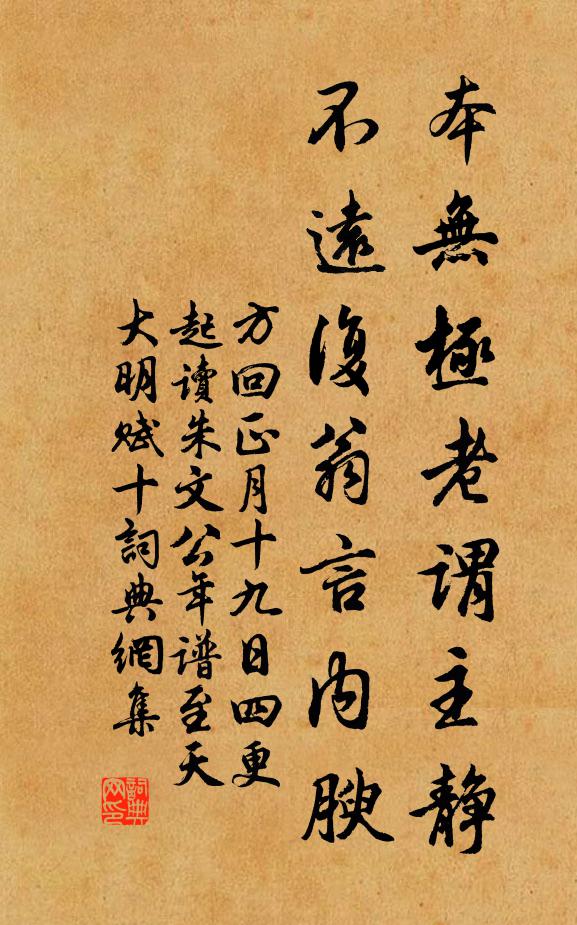 本無極老谓主静
不遠復翁言内腴
方回正月十九日四更
起讀朱文公年谱至天
大明赋十詞典網集
詞典
网印